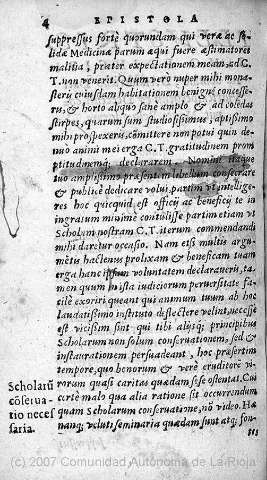 4 EPISTOLA
suppressus fortè quorundam qui veræ ac so-
lidæ Medicinæ parum æqui fuere æstimatores
malitia, præter expectationem meam, ad C.
T. non venerit. Quum verò nuper mihi mona-
sterij cuiusdam habitationem benignè concesse-
ris, & horto aliquo sanè amplo & ad colēdas
stirpes, quarum sum studiosissimus, aptissimo
mihi prospexeris, cōmittere non potui quin de-
nuo animi mei erga C.T. gratitudinem prom
ptitudinemq; declararem. Nomini itaque
tuo amplissimo præsentem libellum consecrare
& publicè dedicare volui, partim vt intellige-
res hoc quicquid est officij ac beneficij te in
ingratum minimè contulisse partim etiam vt
Scholam nostram C.T. iterum commendandi
mihi daretur occasio. Nam etsi multis argu-
mētis hactenus prolixam & beneficam tuam
erga hanc voluntatem declaraueris, ta-
men quum in ista iudiciorum peruersitate fa-
cilè exoriri queant qui animum tuum ab hoc
laudatissimo instituto deflectere velint, necesse
est vicissim sint qui tibi alijsq; principibus
Scholarum non solum conseruationem, sed &
instaurationem persuadeant, hoc præsertim
tempore, quo bonorum & verè eruditorū vi-
rorum quasi caritas quædam sese ostentat. Cui
certè malo qua alia ratione sit occurrendum
quàm Scholarum conseruatione, nō video. Ha
nanq; veluti seminaria quædam sunt atq; fon-
tes
Scholarū
cōseruatio
neces
saria.
(c) 2007 Comunidad Autónoma de La Rioja